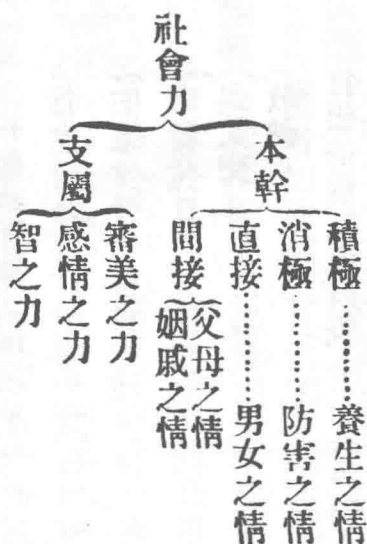 社會力
本幹
積極………養生之情
消極………防害之情
直接………男女之情
間接
父母之情
姻戚之情
支屬
審美之力
感情之力
智之力